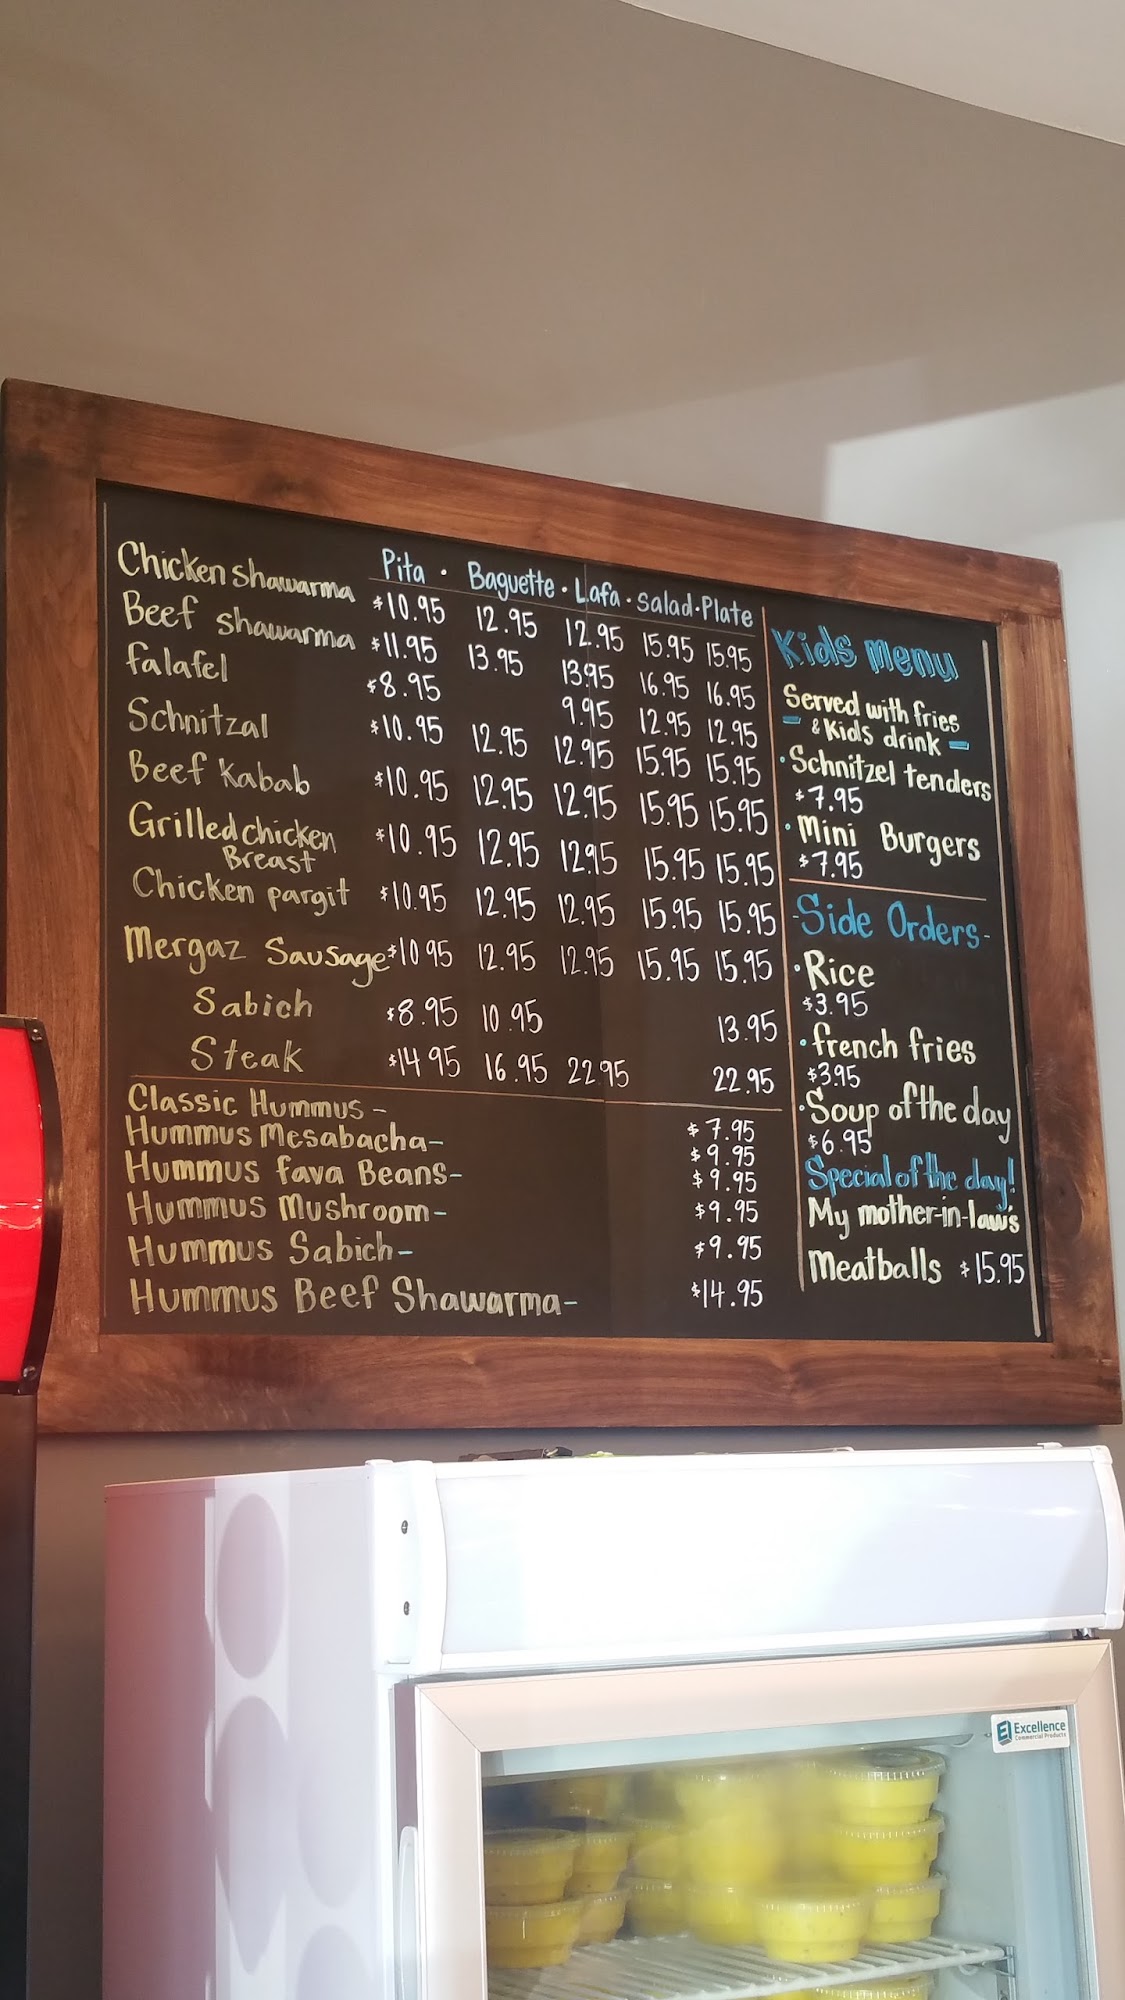 Pita · Baguette · Lafa · Salad · Plate
Chicken shawarma $10.95 12.95 12.95 15.95 15.95
Beef shawarma $11.95 13.95 13.95 16.95 16.95
falafel $8.95 9.95 12.95 12.95
Schnitzal $10.95 12.95 12.95 15.95 15.95
Beef Kabab $10.95 12.95 12.95 15.95 15.95
Grilled chicken
Breast $10.95 12.95 12.95 15.95 15.95
Chicken pargit $10.95 12.95 12.95 15.95 15.95
Mergaz Sausage $10.95 12.95 12.95 15.95 15.95
Sabich $8.95 10.95 13.95
Steak $14.95 16.95 22.95 22.95
Classic Hummus - $7.95
Hummus Mesabacha - $9.95
Hummus fava Beans - $9.95
Hummus Mushroom - $9.95
Hummus Sabich - $9.95
Hummus Beef Shawarma - $14.95
Kids menu
Served with fries
- & Kids drink -
· Schnitzel tenders
$7.95
· Mini Burgers
$7.95
- Side Orders -
· Rice
$3.95
· french fries
$3.95
· Soup of the day
$6.95
Special of the day!
My mother-in-law's
Meatballs $15.95
Excellence
Commercial Products